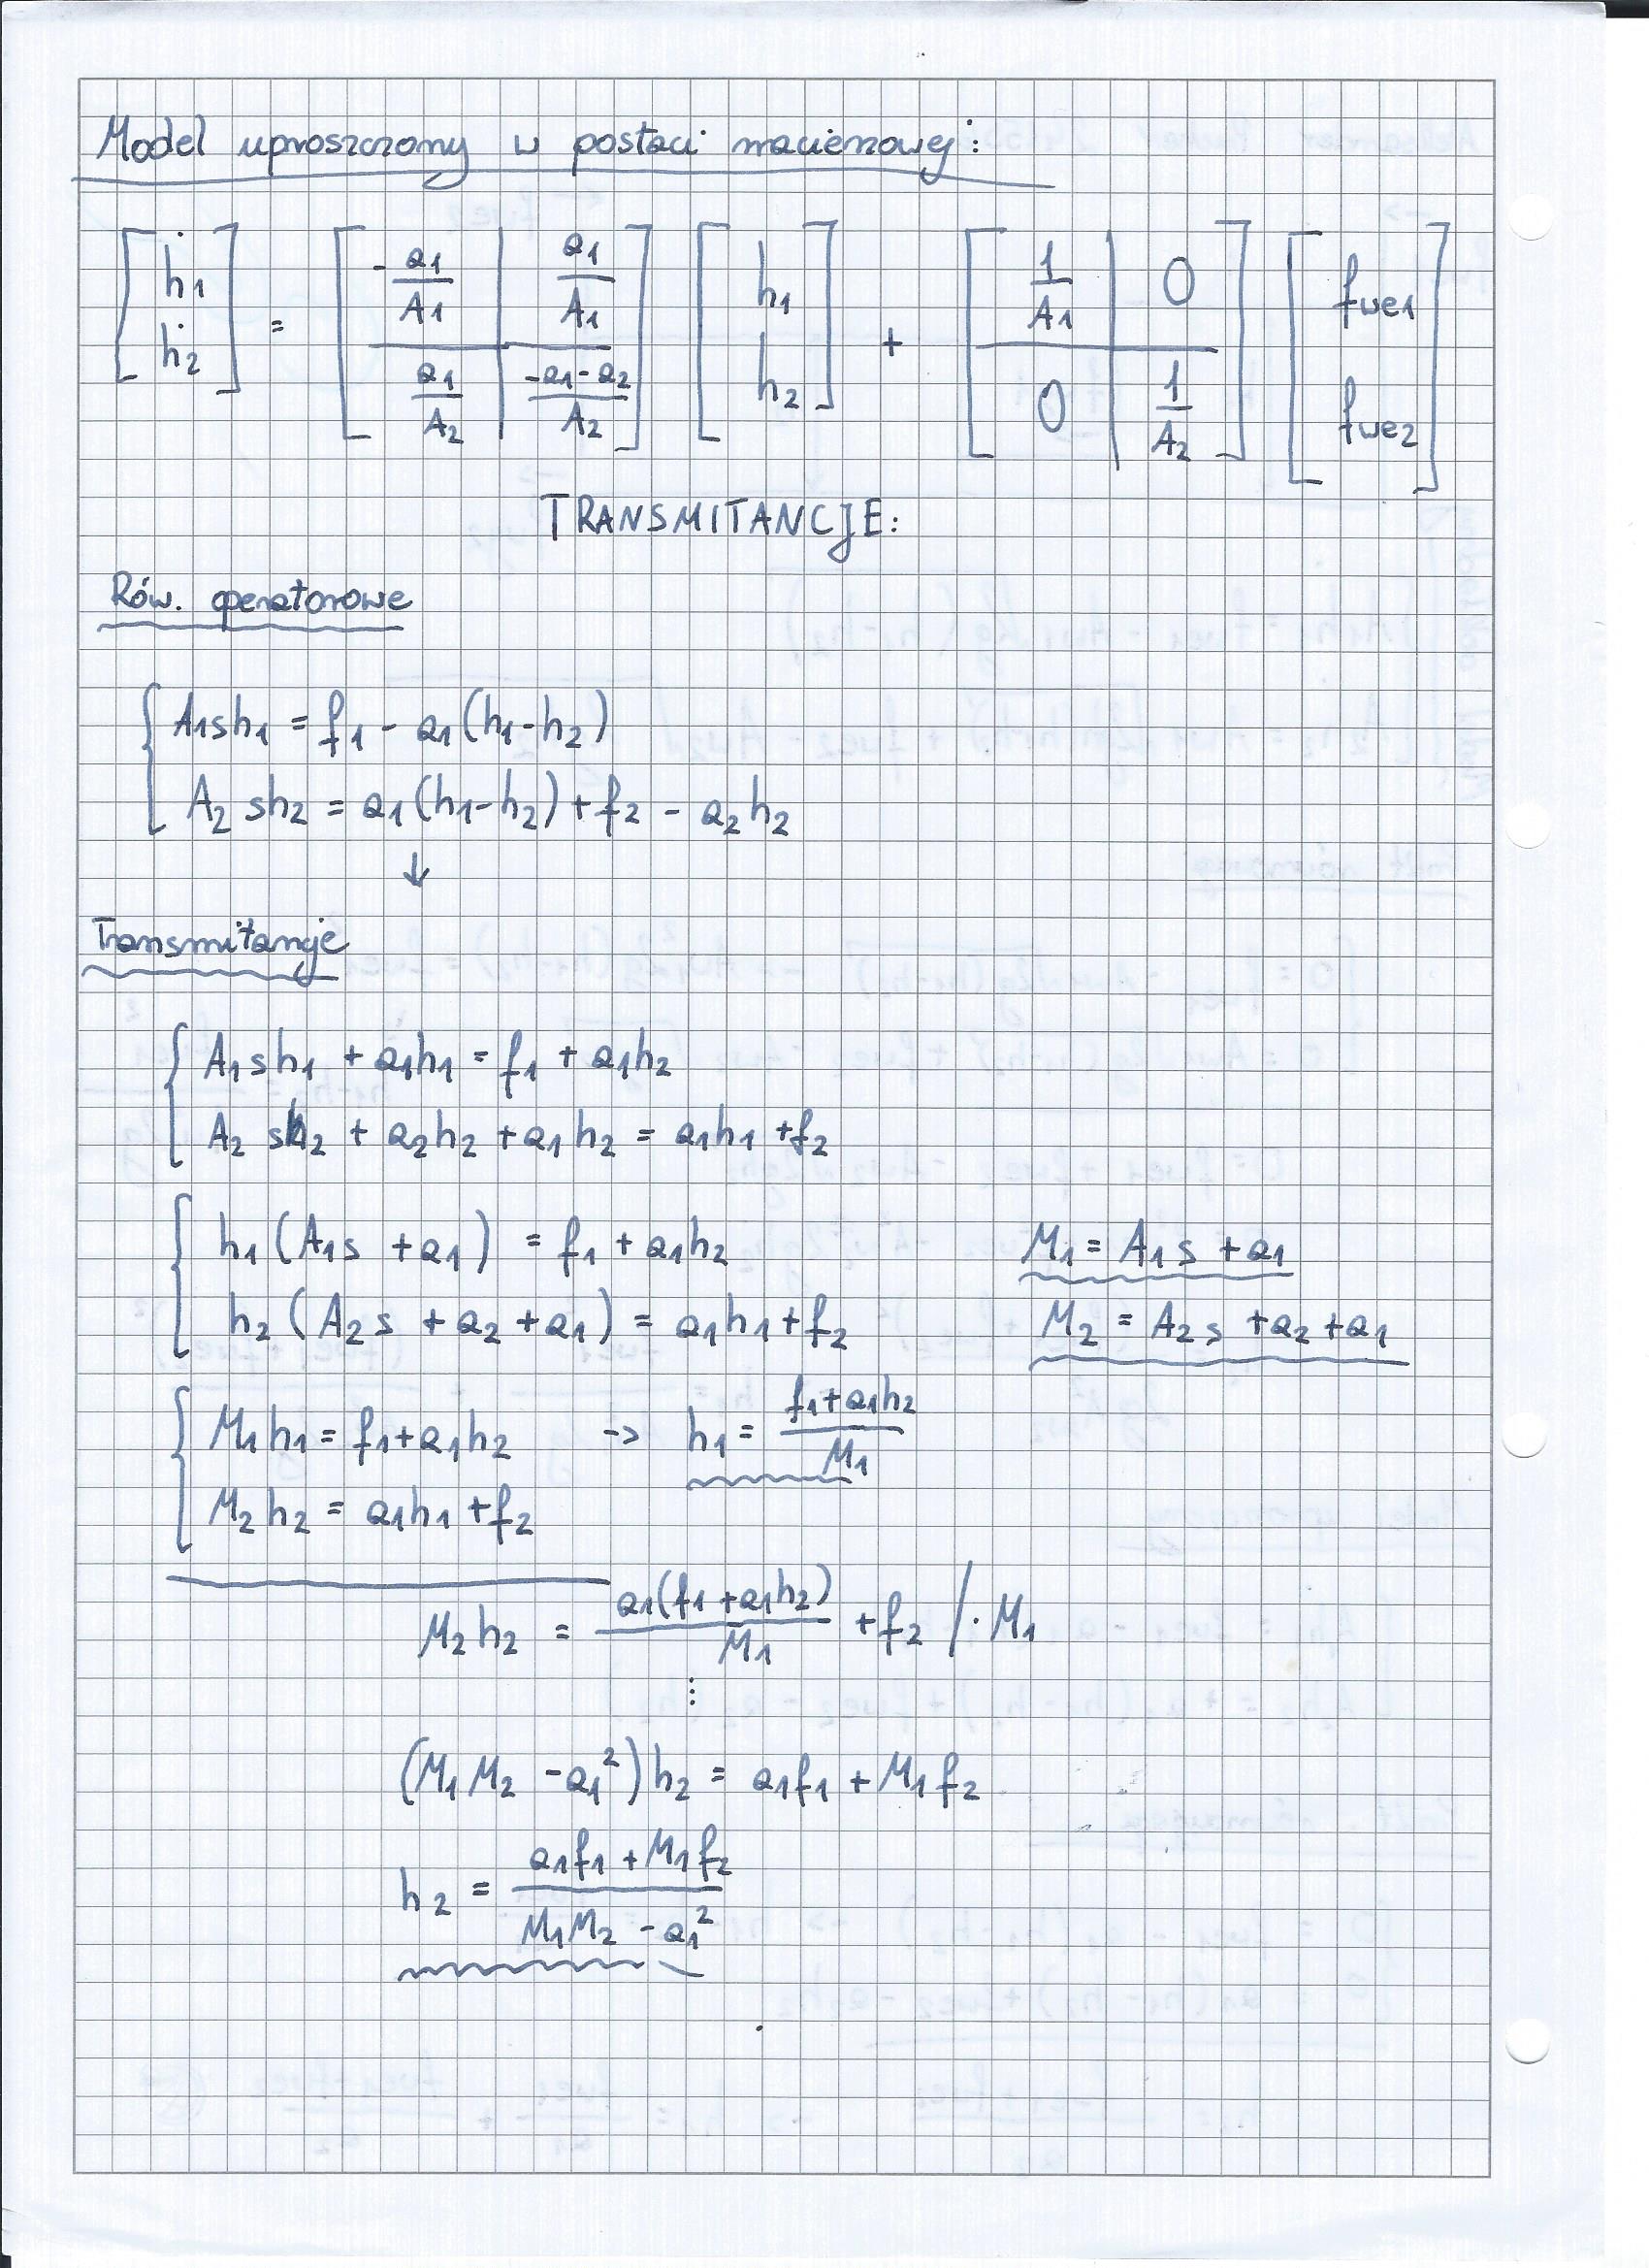 Model uproszczony w postaci macierzowej:
[ḣ1 ; ḣ2] = [-a1/A1 | a1/A1 ; a1/A2 | (-a1-a2)/A2] [h1 ; h2] + [1/A1 | 0 ; 0 | 1/A2] [fwe1 ; fwe2]
TRANSMITANCJE:
Rów. operatorowe
A1sh1 = f1 - a1(h1-h2)
A2sh2 = a1(h1-h2) + f2 - a2h2
↓
Transmitancje
A1sh1 + a1h1 = f1 + a1h2
A2sh2 + a2h2 + a1h2 = a1h1 + f2
h1(A1s + a1) = f1 + a1h2 M1 = A1s + a1
h2(A2s + a2 + a1) = a1h1 + f2 M2 = A2s + a2 + a1
M1h1 = f1 + a1h2 -> h1 = (f1 + a1h2)/M1
M2h2 = a1h1 + f2
M2h2 = a1(f1 + a1h2)/M1 + f2 / · M1
⋮
(M1M2 - a1²)h2 = a1f1 + M1f2
h2 = (a1f1 + M1f2)/(M1M2 - a1²)